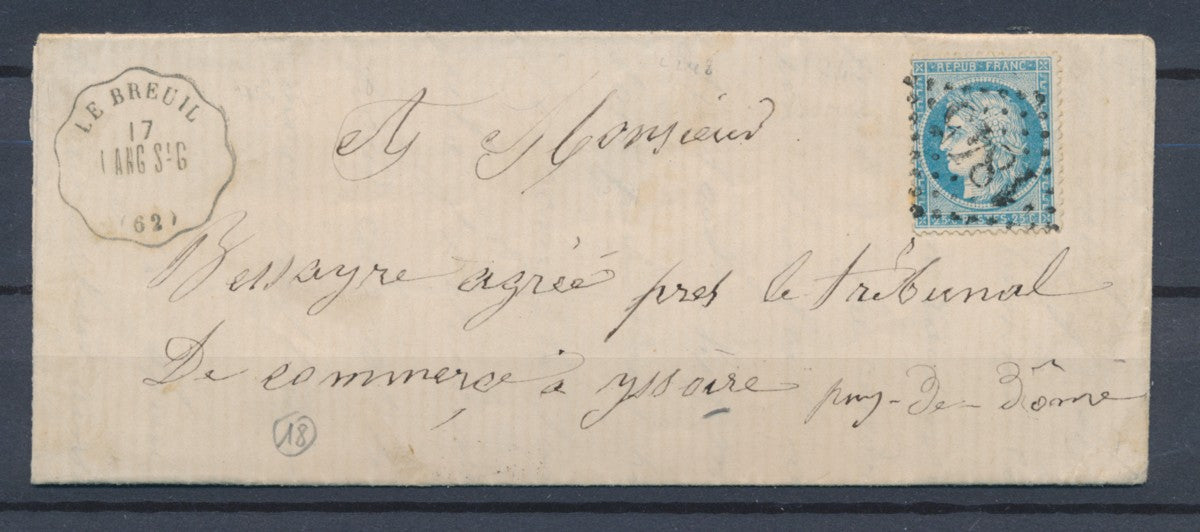 LE BREUIL
17
LANG St G
(62)
REPUB FRANC
25 C
A Monsieur
Bessayre agréé pres le tribunal
De commerce à yssoire puy-De-Dôme
18